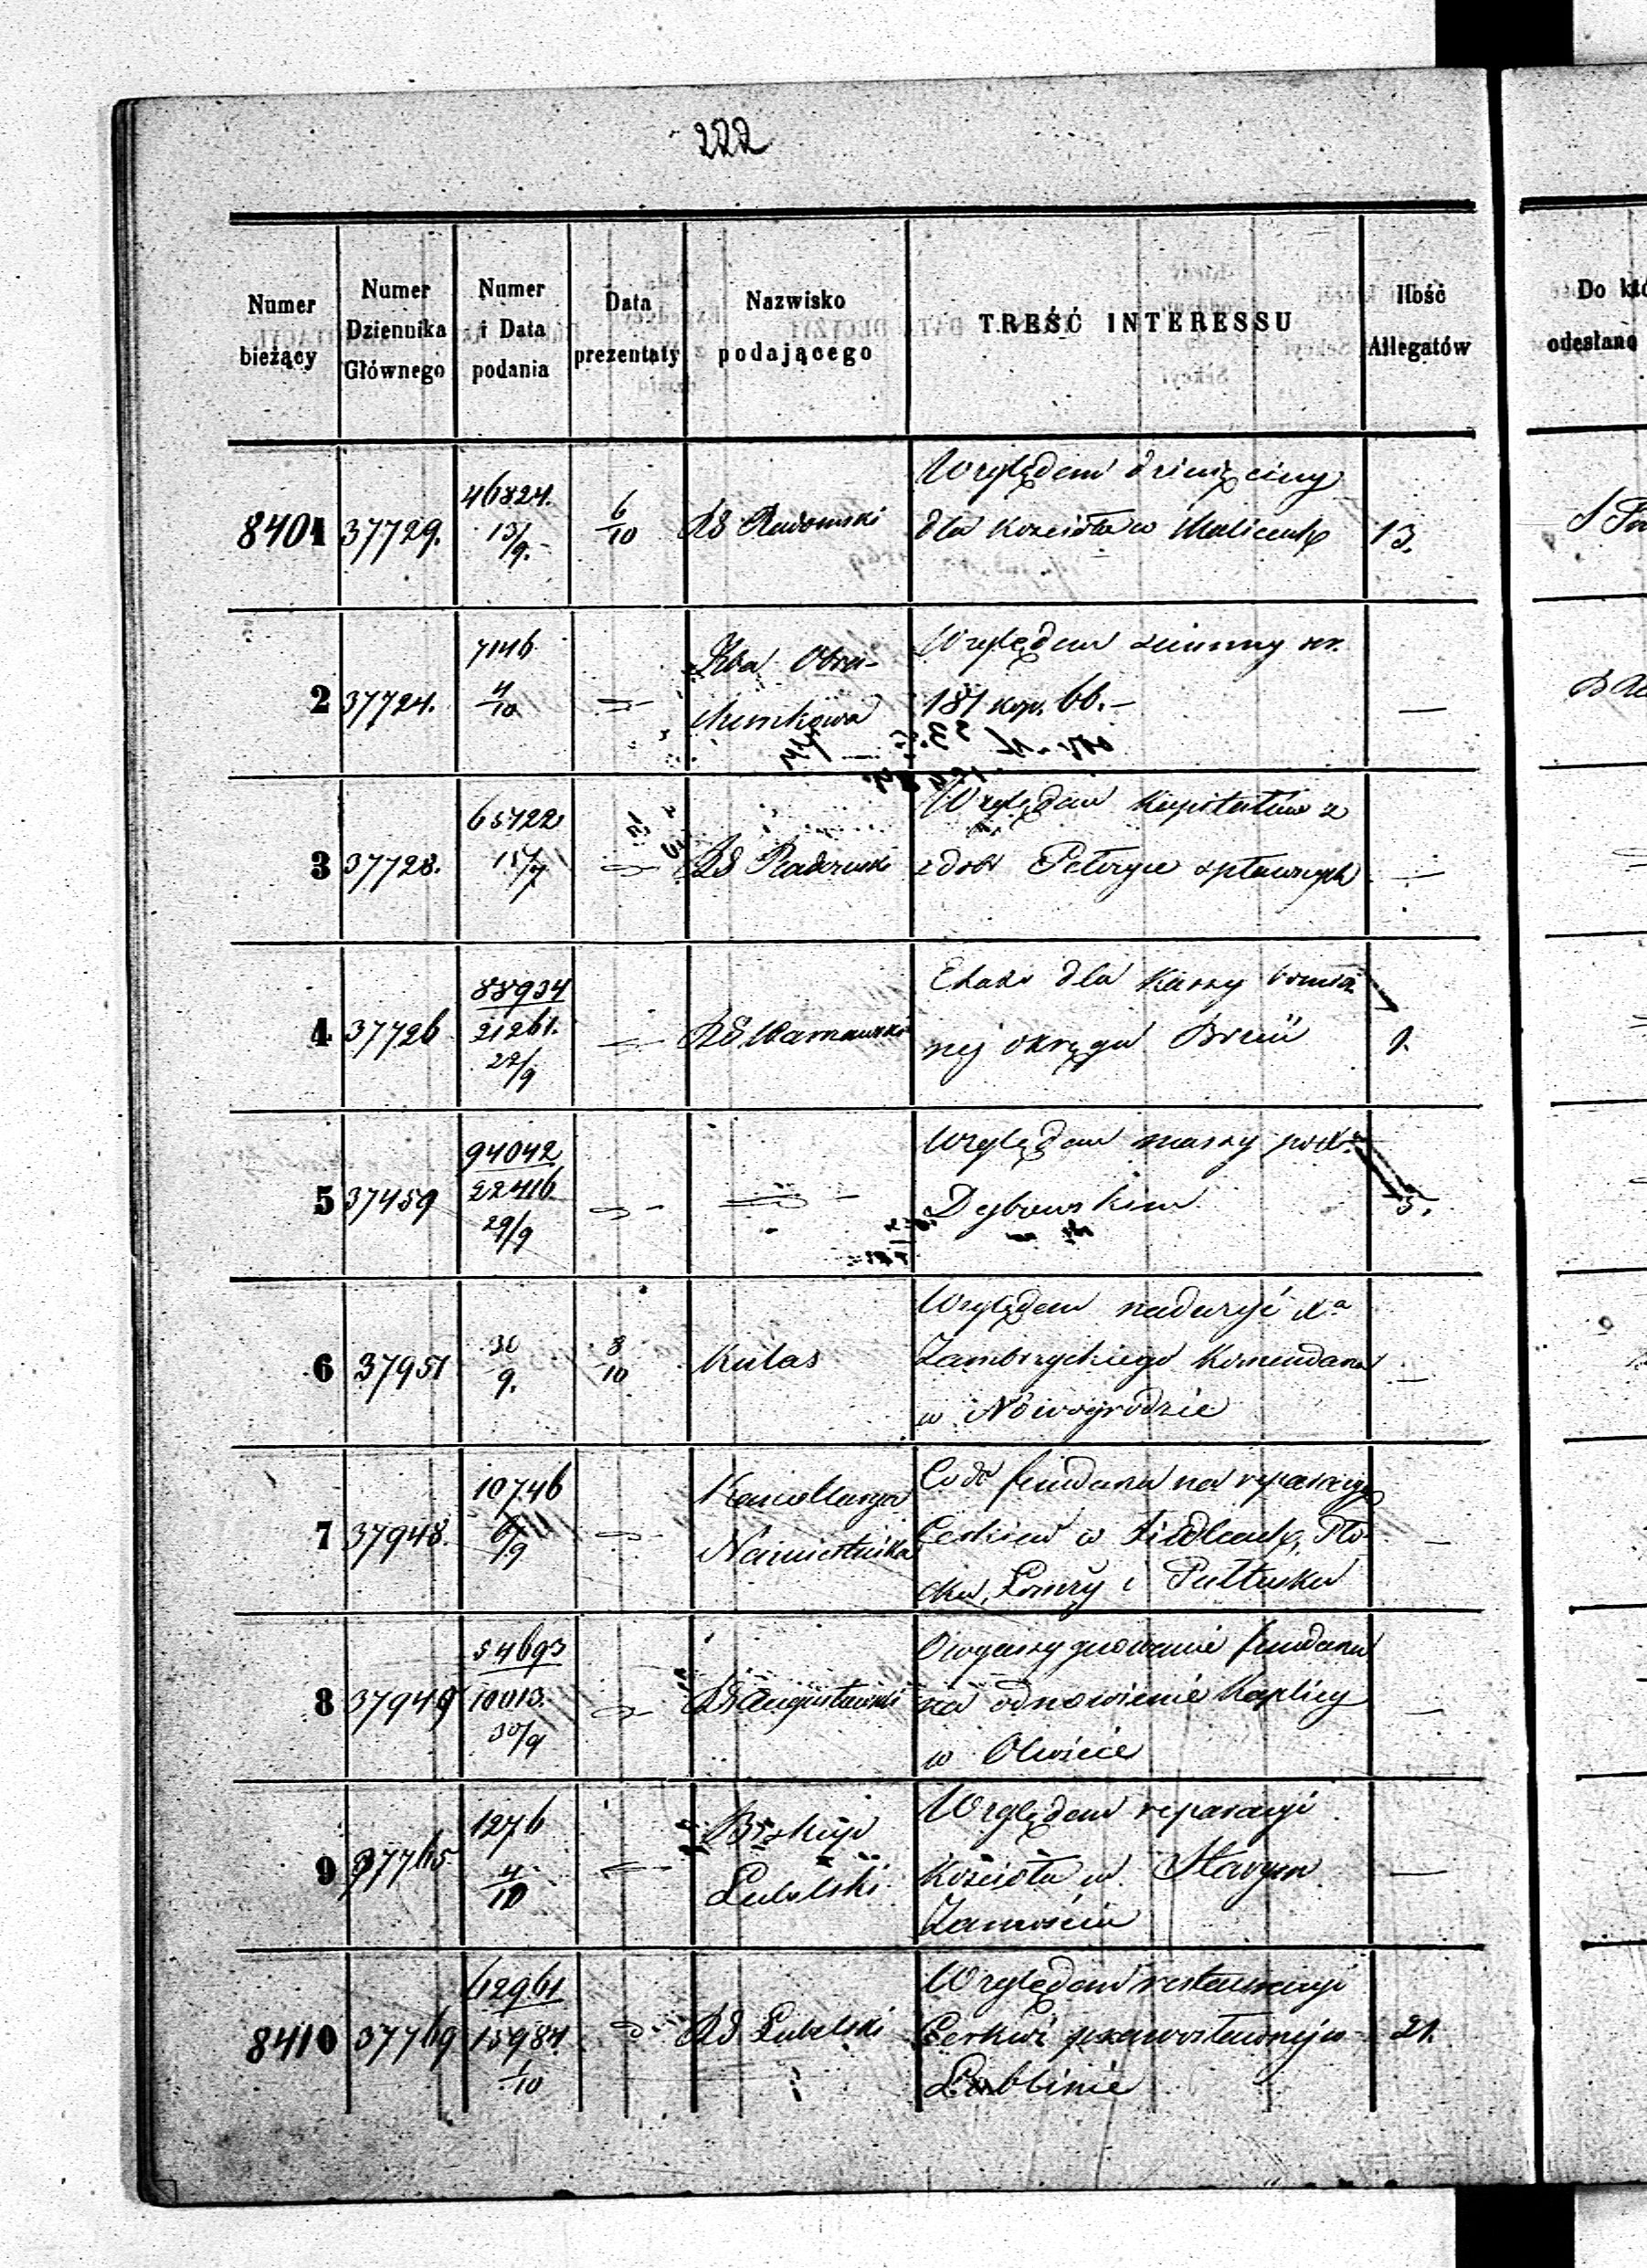 222
Numer bieżący
Numer Dziennika Głównego
Numer i Data podania
Data prezentaty
Nazwisko podającego
TREŚĆ INTERESSU
Ilość Allegatów
Do któ
odesłano
8401 37729. 46824. 13/9. 6/10 RG Radomski Względem dziesięciny
dla kościoła w Malicach 13.
2 37724. 7146 4/10 Izba Obra-
chunkowa Względem summy rs.
181 kop. 66. —
3 37728. 65722 15/7 RG Radomski Względem Kapitałów z
z dóbr Petryce spławnych —
4 37726 88934 21261. 22/9 RG Warszawski Etat dla Kassy
nej okręgu 9.
5 37459 94042 22416 29/9 — Względem massy
Dybowskim 5.
6 37951 30/9. 8/10 Kulas Względem nadużyć Xa
Zambrzyckiego Komendarza
w Nowogrodzie —
7 37948. 10746 6/9 Kancellarya
Namiestnika Co do funduszu na reparacyę
Cerkiew w Siedlcach, Pło-
cku, Łomży i Pułtusku —
8 37949 54693 10013. 30/9 RG Augustowski O wyassygnowanie funduszu
na odnowienie Kaplicy
w —
9 37765 1276 4/10 Biskup
Lubelski Względem reparacyi
Kościoła w Starym
Zamościu —
8410 37769 62961 15984 1/10 RG Lubelski Względem restauracyi
Cerkwi prawosławnej w
Lublinie 21.